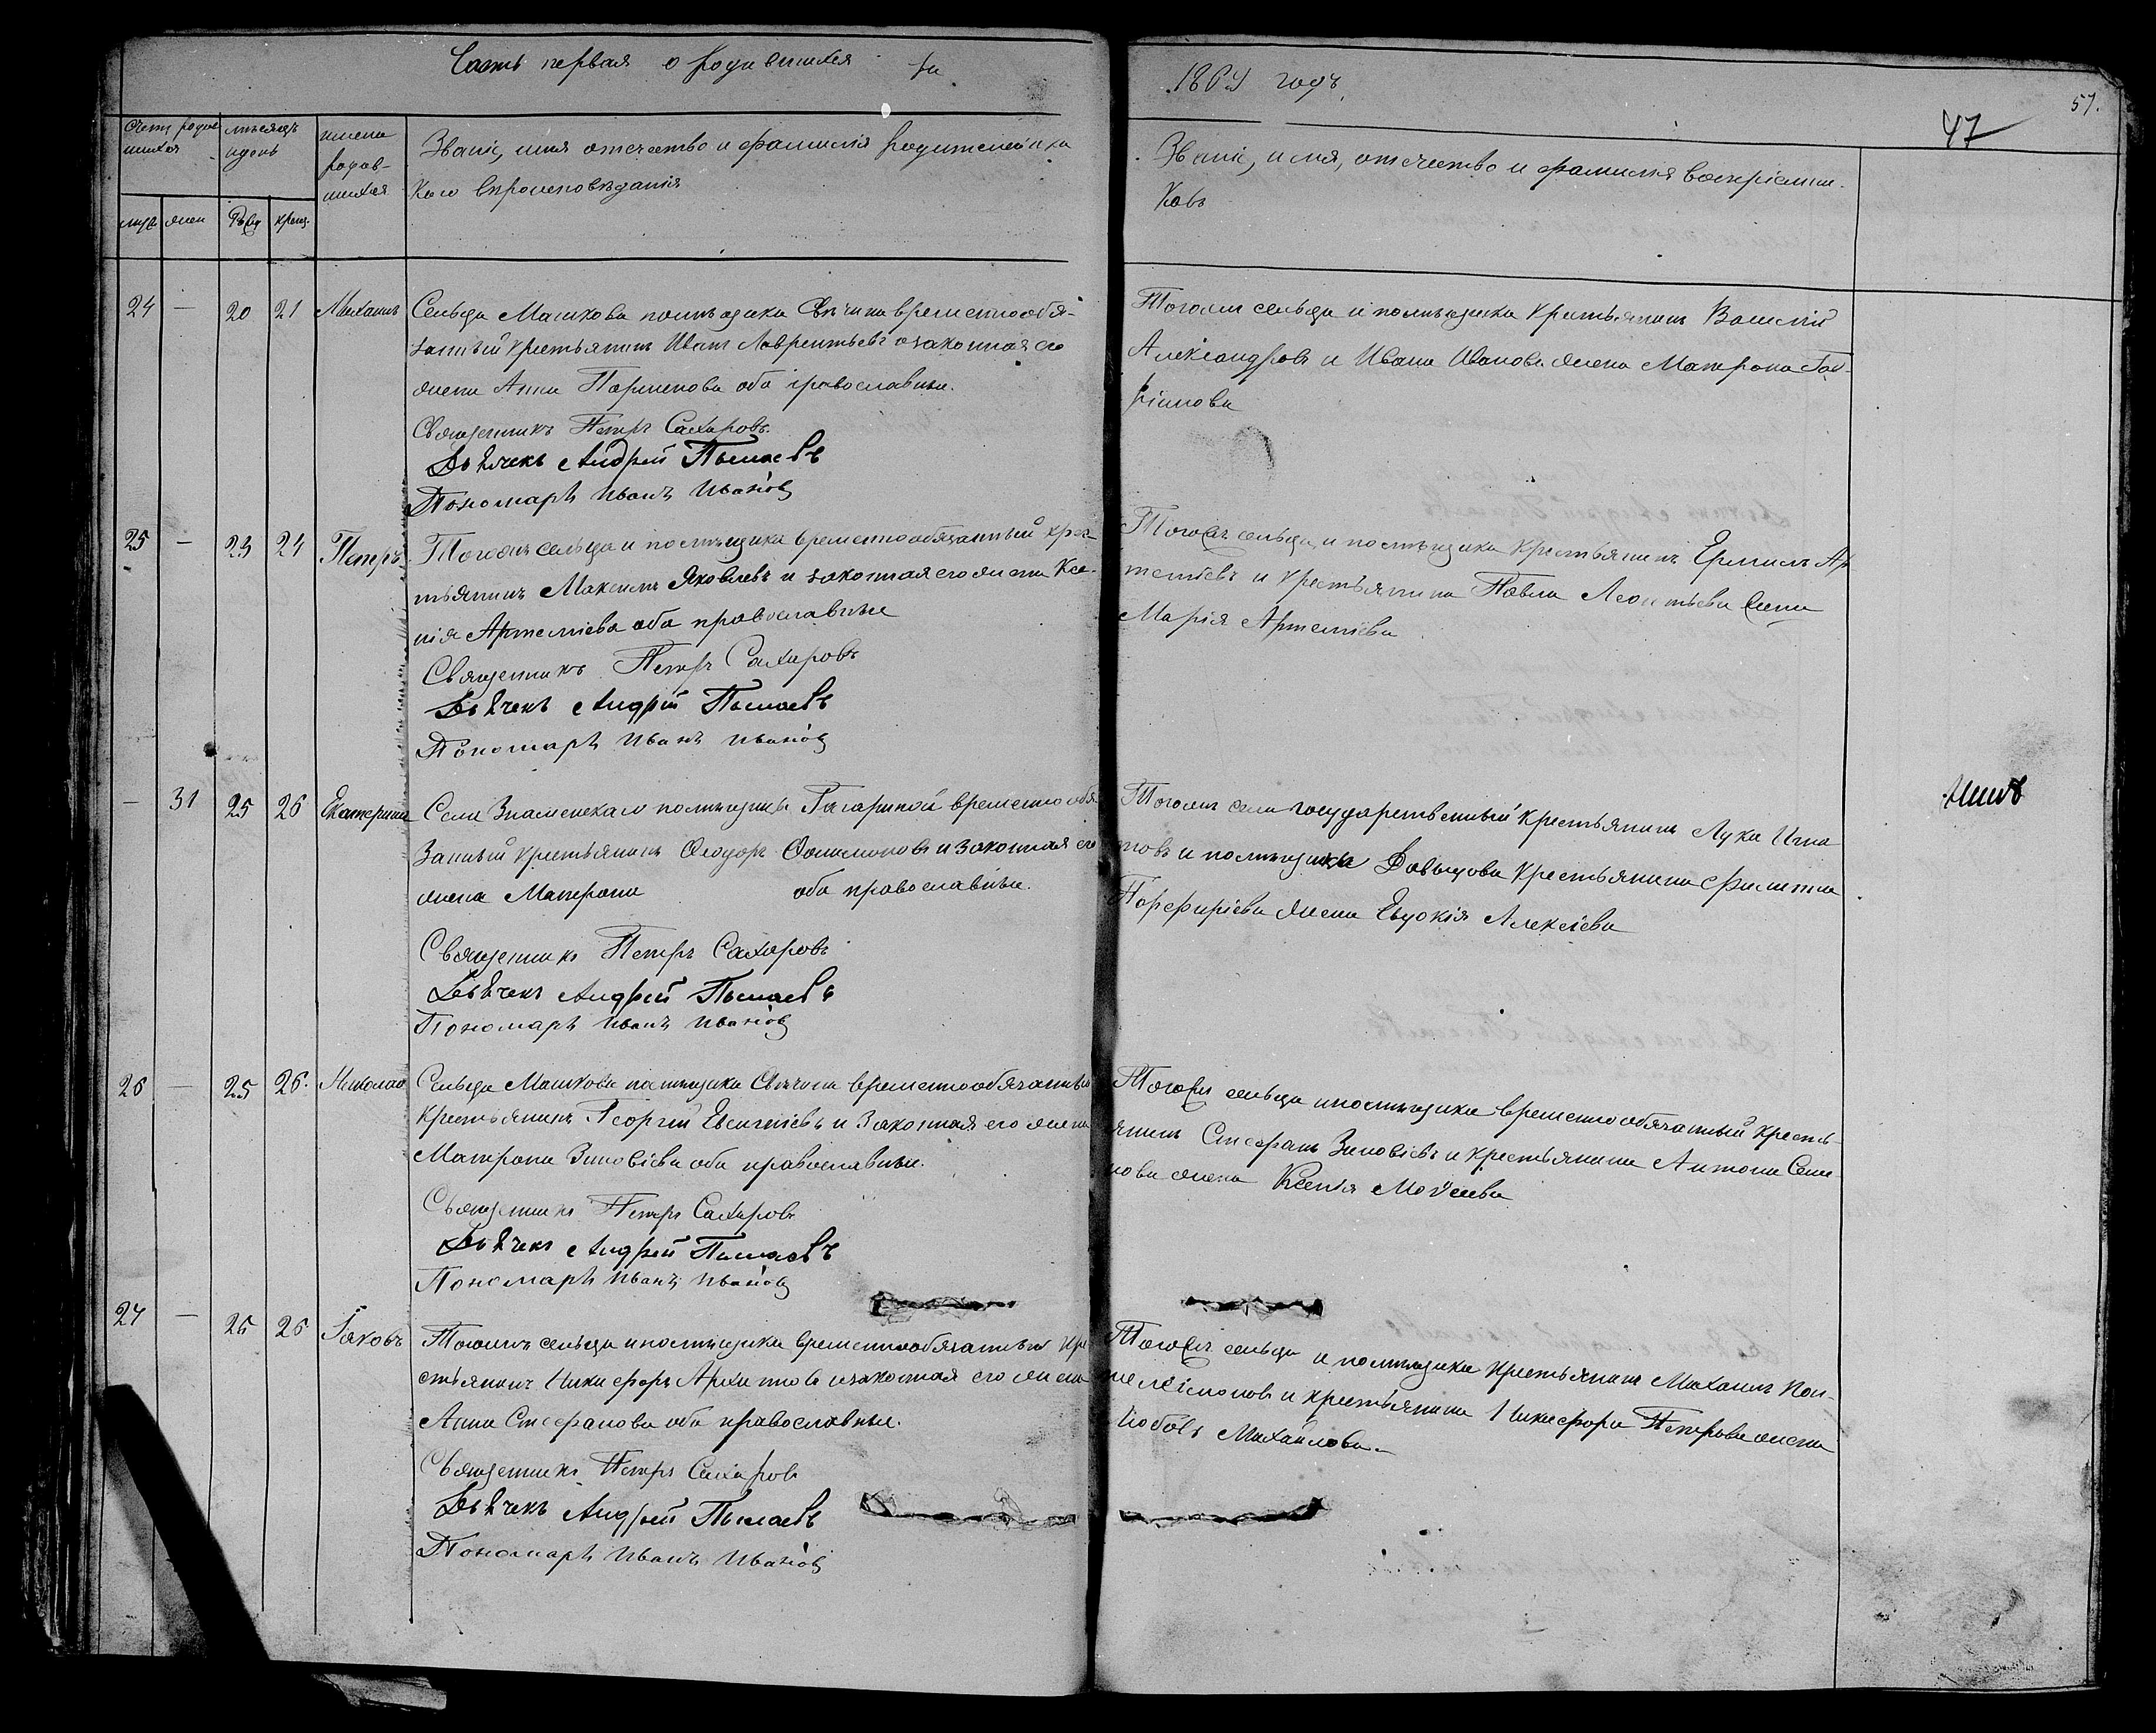 Часть первая о родившихся за
1864 годъ
57.
47
Счетъ родив
шихся
мѣсяцъ
и день
имена
родив-
шихся
Званіе, имя отчество и фамилія родителей и ка
кого вѣроисповѣданія
Званіе, имя, отчество и фамилія воспріемни-
ковъ
муж. жен рожд крещ.
24 — 20 21 Михаилъ
Сельца Машкова помѣщика Свѣчина временнообя-
занный крестьянинъ Иванъ Лаврентьевъ и законная его
жена Анна Парменова оба православные.
Священникъ Петръ Сахаровъ.
Дьячекъ Андрей Пылаевъ
Пономарь Иванъ Ивановъ
Тогожъ сельца и помѣщика крестьянинъ Василій
Александровъ и Ивана Иванова жена Матрона
25 — 23 24 Петръ
Тогожъ сельца и помѣщика временнообязанный крес-
тьянинъ Максимъ Яковлевъ и законная его жена Ксе-
нія Артеміева оба православные
Священникъ Петръ Сахаровъ
Дьячекъ Андрей Пылаевъ
Пономарь Иванъ Ивановъ
Тогожъ сельца и помѣщика крестьянинъ Ермилъ Ар
теміевъ и крестьянина Павла Леонтьева жена
Марія Артеміева
— 31 25 26 Екатерина
Села Знаменскаго помѣщицы Гагариной временнообя-
занный крестьянинъ Ѳеодоръ Филимоновъ и законная его
жена Матрона оба православные.
Священникъ Петръ Сахаровъ
Дьячекъ Андрей Пылаевъ
Пономарь Иванъ Ивановъ
Тогожъ села государственный крестьянинъ Лука Игна
товъ и помѣщика Давыдова крестьянина Филиппа
Порфиріева жена Евдокія Алексіева
26 — 25 26. Николай
Сельца Машкова помѣщика Свѣчина временнообязанный
крестьянинъ Георгій Евсигніевъ и законная его жена
Матрона Зиновіева оба православные.
Священникъ Петръ Сахаровъ
Дьячекъ Андрей Пылаевъ
Пономарь Иванъ Ивановъ
Тогожъ сельца и помѣщика временнообязанный кресть-
янинъ Стефанъ Зиновіевъ и крестьянина Антона Семе
нова жена Ксенія Моѵсеева
27 — 25 26 Іаковъ
Тогожъ сельца и помѣщика временнообязанный кре
стьянинъ Никифоръ Архиповъ и законная его жена
Анна Стефанова оба православные.
Священникъ Петръ Сахаровъ
Дьячекъ Андрей Пылаевъ
Пономарь Иванъ Ивановъ
Тогожъ сельца и помѣщика крестьянинъ Михаилъ Пан-
телеимоновъ и крестьянина Никифора Петрова жена
Любовь Михайлова.